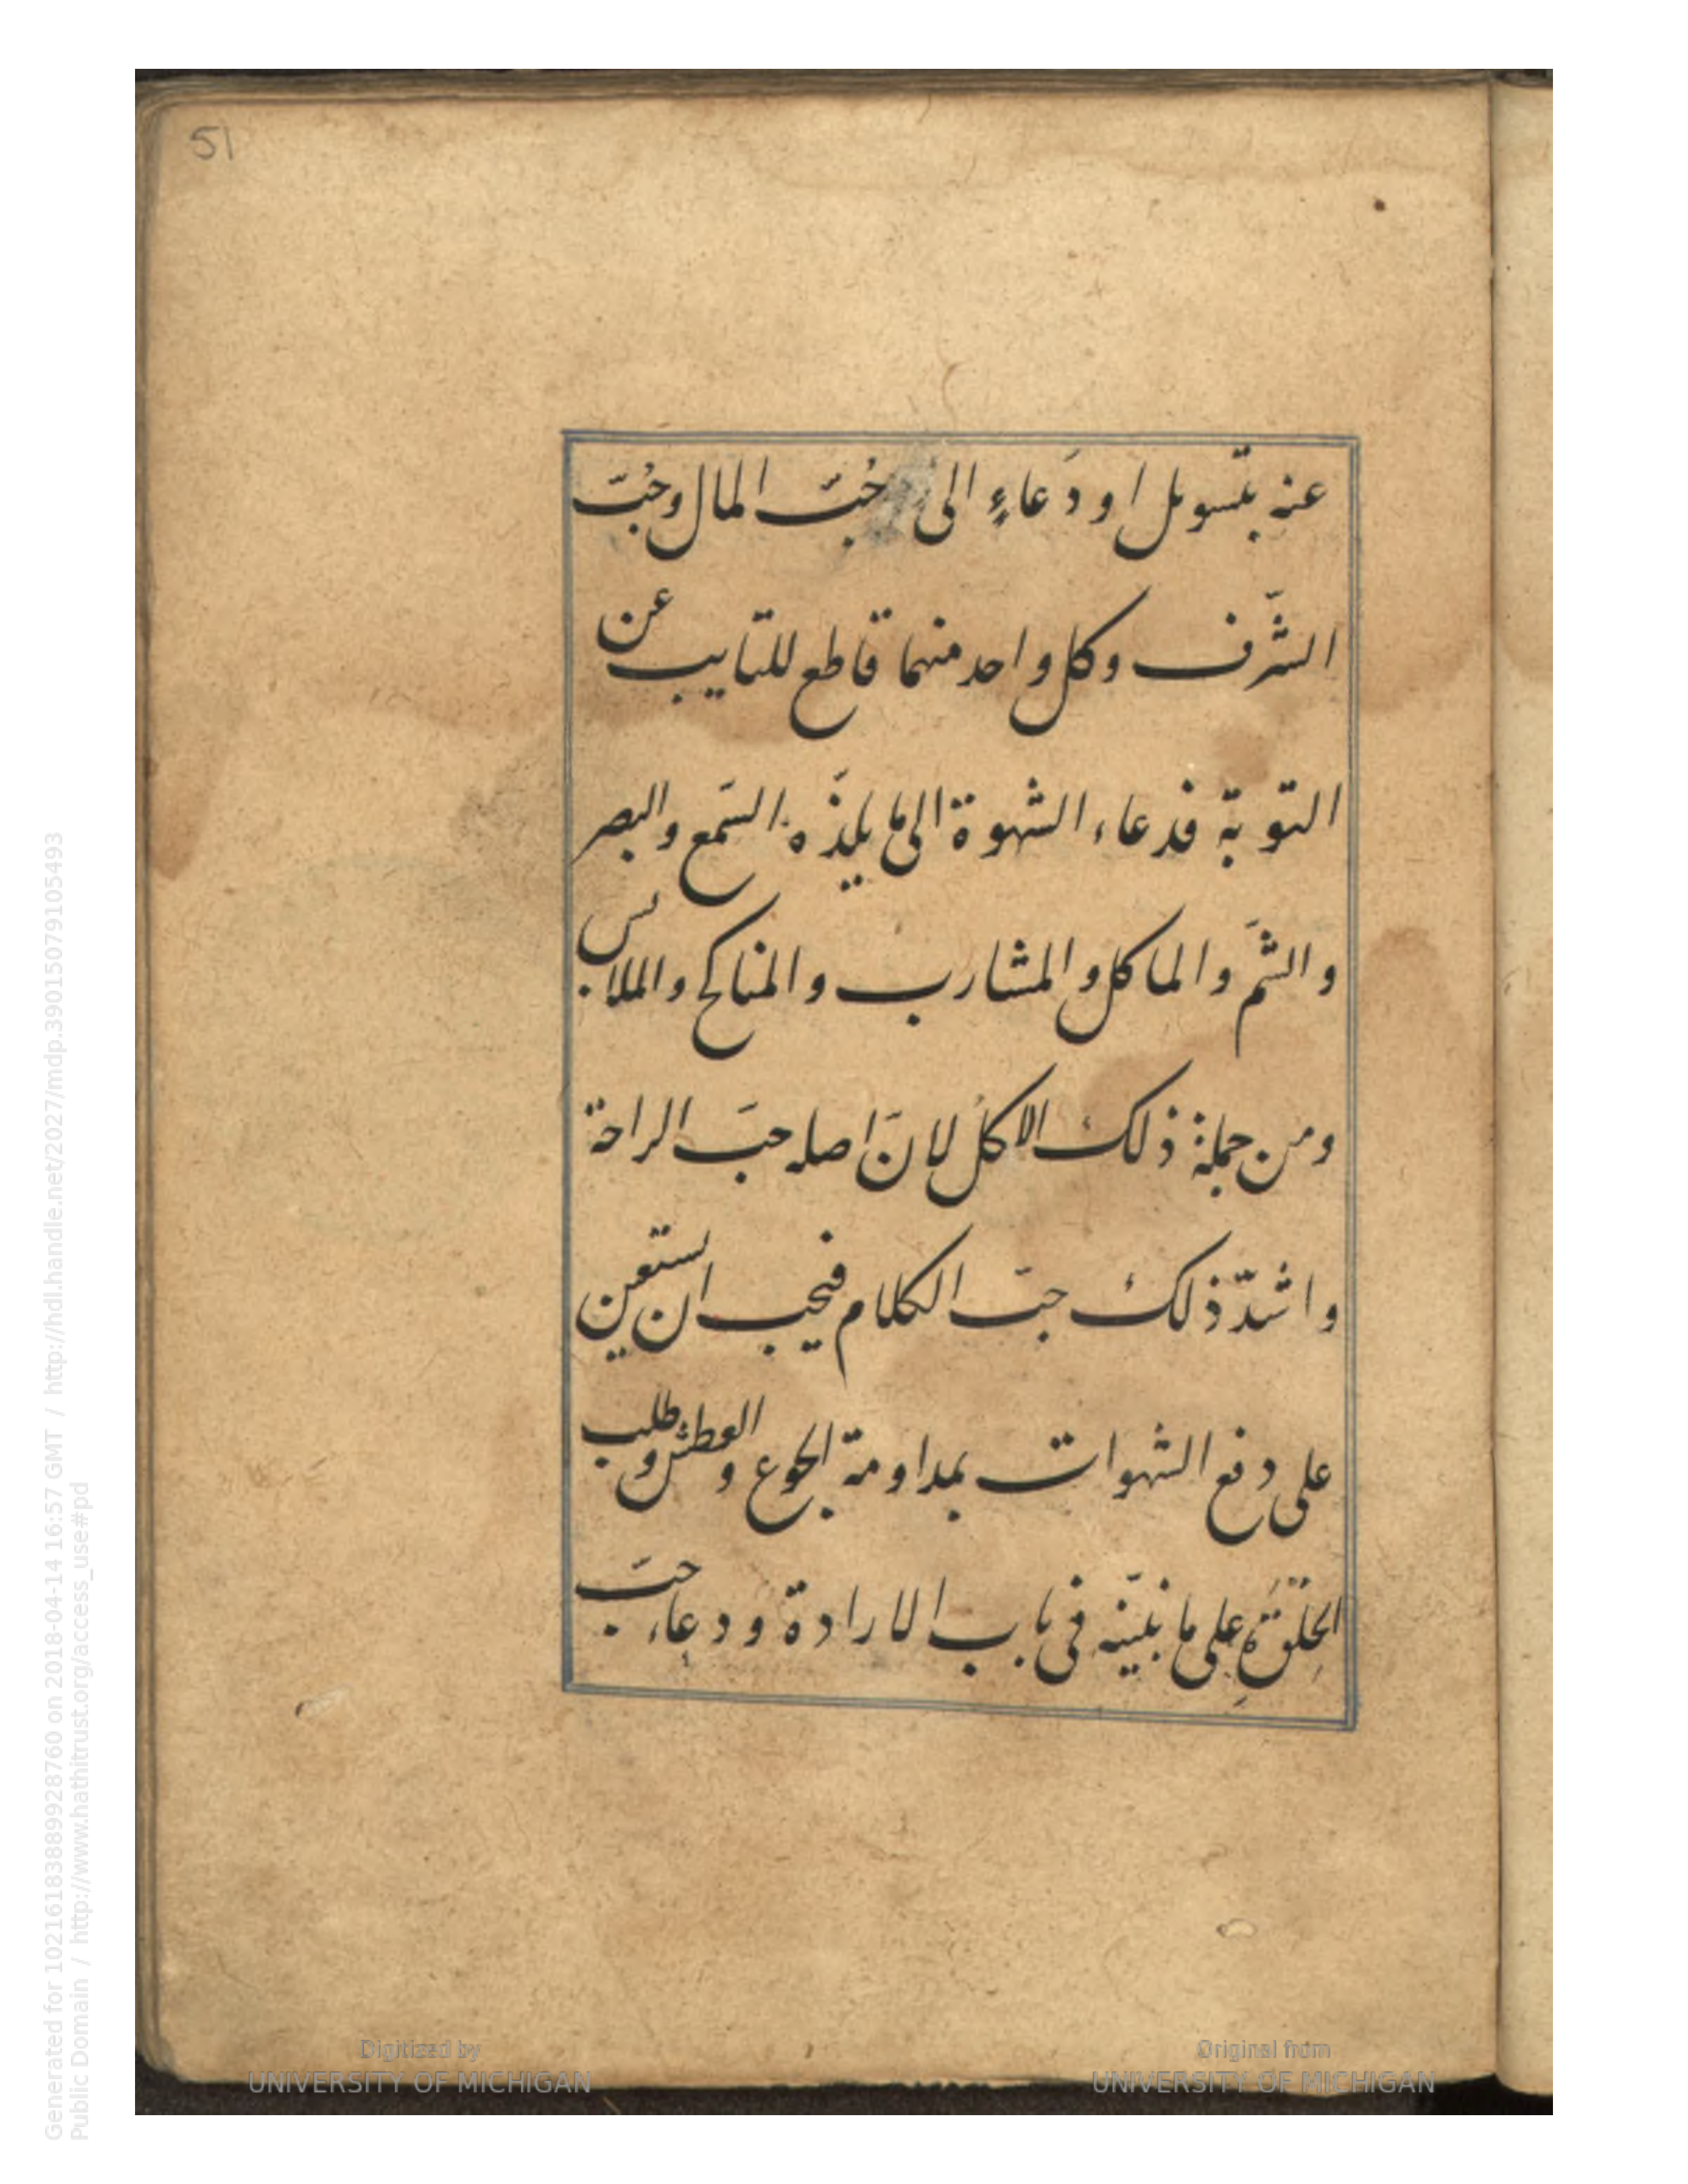 51
عنه بتسويل او دَعاءٍ الى حُبّ المال وحُبّ
الشّرف وكل واحد منهما قاطع للتايب عن
التوبة فدعاء الشهوة الى ما يلذّه السّمع والبصر
والشّم والماكل والمشارب والمناكح والملابس
ومن جملة ذلك الاكل لانّ اصله حبّ الراحة
واشدّ ذلك حبّ الكلام فيجب ان يستعين
على دفع الشهوات بمداومة الجوع والعطش وطلب
على ما نبيّنه فى باب الارادة ودعاء حبّ
Generated for 10216183889928760 on 2018-04-14 16:57 GMT / http://hdl.handle.net/2027/mdp.39015079105493
Public Domain / http://www.hathitrust.org/access_use#pd
Digitized by
UNIVERSITY OF MICHIGAN
Original from
UNIVERSITY OF MICHIGAN